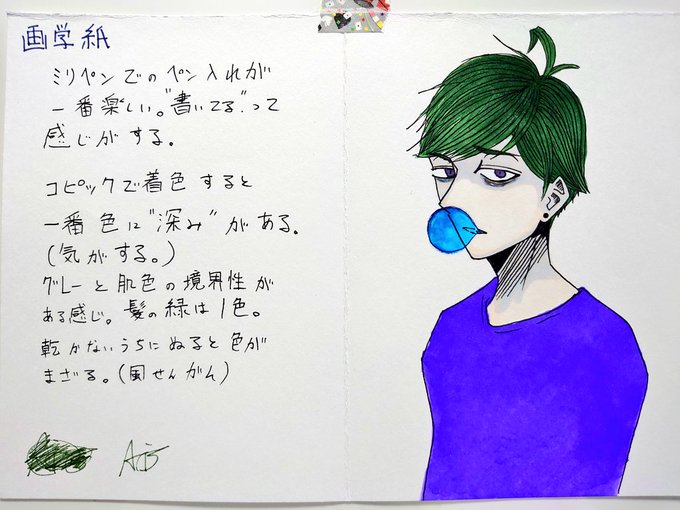 画学紙
ミリペンでのペン入れが
一番楽しい。"書いてる"って
感じがする。
コピックで着色すると
一番色に"深み"がある。
(気がする。)
グレーと肌色の境界性が
ある感じ。髪の緑は1色。
乾かないうちにぬると色が
まざる。(風せんがん)